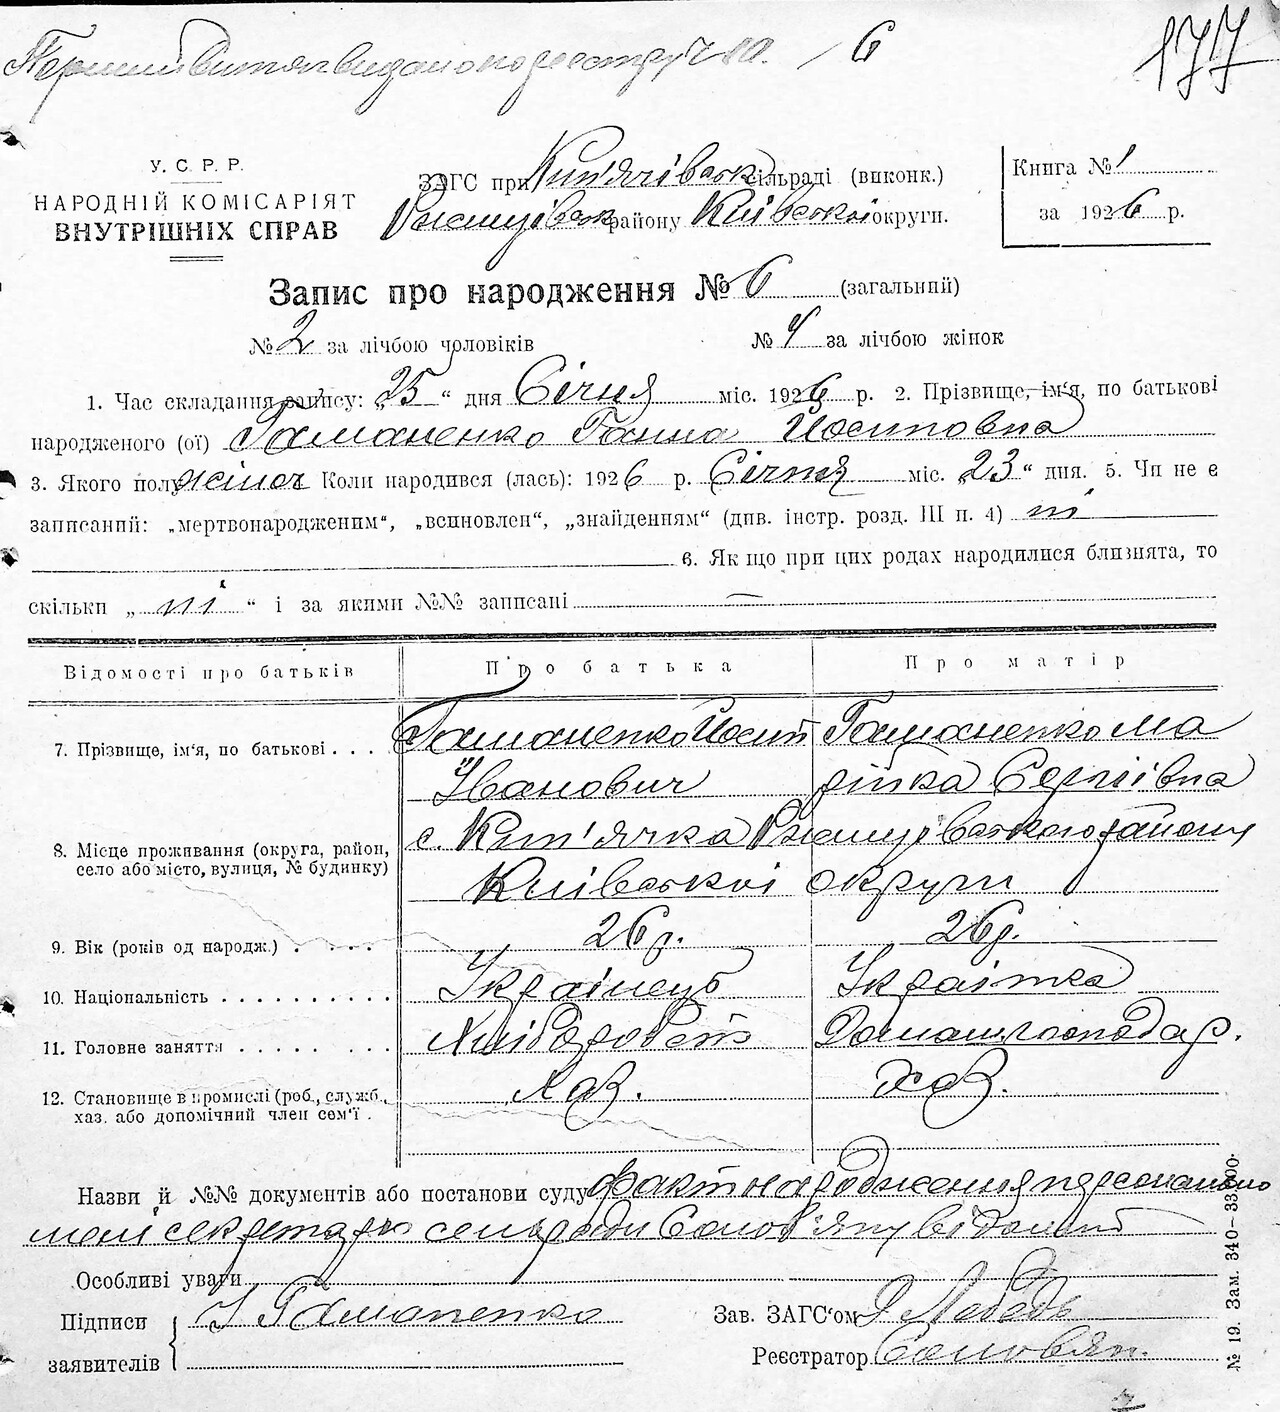 Перший витяг видано по реєстру ч на. / 6
177
У. С. Р. Р.
НАРОДНІЙ КОМІСАРІЯТ
ВНУТРІШНІХ СПРАВ
ЗАГС при Кип'ячівськ сільраді (виконк.)
Ржищівськ району Київської округи.
Книга № 1
за 1926 р.
Запис про народження № 6 (загальний)
№ 2 за лічбою чоловіків № 4 за лічбою жінок
1. Час складання запису: „25“ дня Січня міс. 1926 р. 2. Прізвище, ім'я, по батькові
народженого (ої) Гаманенко Ганна Йосиповна
3. Якого полу жіноч Коли народився (лась): 1926 р. Січня міс. „23“ дня. 5. Чи не є
записаний: „мертвонародженим“, „всиновлен“, „знайденням“ (див. інстр. розд. III п. 4) ні
6. Як що при цих родах народилися близнята, то
скільки „ ні “ і за якими №№ записані —
Відомості про батьків Про батька Про матір
7. Прізвище, ім'я, по батькові . . . Гаманенко Йосип Гаманенко Ма
Іванович рійка Сергіївна
8. Місце проживання (округа, район, село або місто, вулиця, № будинку) с. Кип'ячка Ржищівського району
Київської округи
9. Вік (років од народж.) . . . . 26 р. 26 р.
10. Національність . . . . . . . . . . Українець Українка
11. Головне заняття . . . . . . . . Хлібороб Домаш. господар.
12. Становище в промислі (роб., служб., хаз. або допомічний член сем'ї . Хаз. Хаз.
Назви й №№ документів або постанови суду факт народження персонально
мені секретарю сельради Солов'яну відомий
Особливі уваги
Підписи заявителів { Й Гаманенко
Зав. ЗАГС'ом Лебедь
Реєстратор Солов'ян.
№ 19. Зам. 340–33.000.